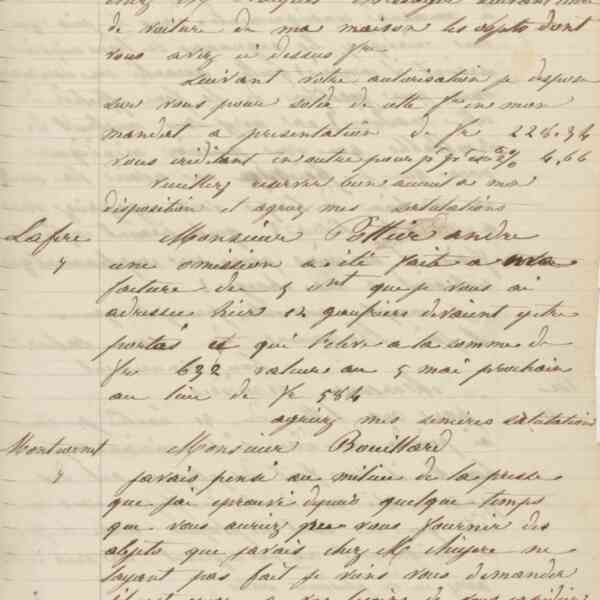 de voiture de ma maison les objets dont
vous avez ci dessus fre
Suivant votre autorisation je dispose
sur vous pour solde de cette fre en mon
mandat a presentation de fr 228.34
vous créditant en outre pour 2% 4,66
veuillez reserver bon accueil a ma
disposition et agréez mes salutations
Lafère Monsieur Pottier andre
une omission a été faite a ma
facture du 5 ct que je vous ai
adressée hier 12 gaufriers devaient y etre
portés et qui l'élève a la somme de
fr 632 valeur au 5 mai prochain
au lieu de fr 584
agréez mes sincères salutations
Montcornet Monsieur Bouillard
javais pensé au milieu de la presse
que jai eprouvé depuis quelque temps
que vous auriez pu vous fournir des
objets que javais chez M ne
layant pas fait je viens vous demander